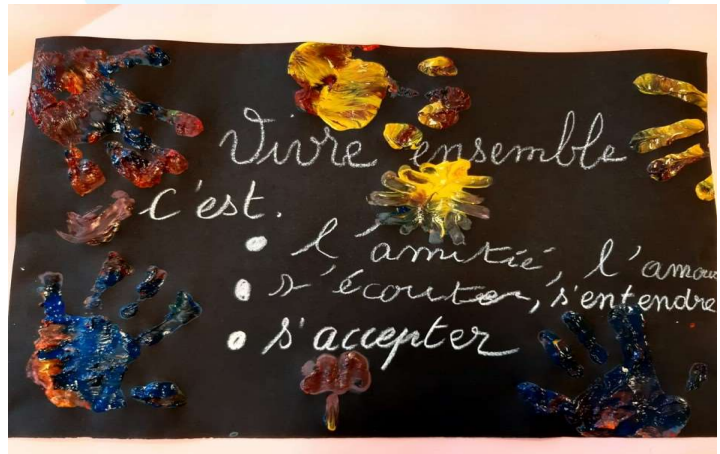 Vivre ensemble
c'est.
• l'amitié, l'amour
• s'écouter, s'entendre
• s'accepter